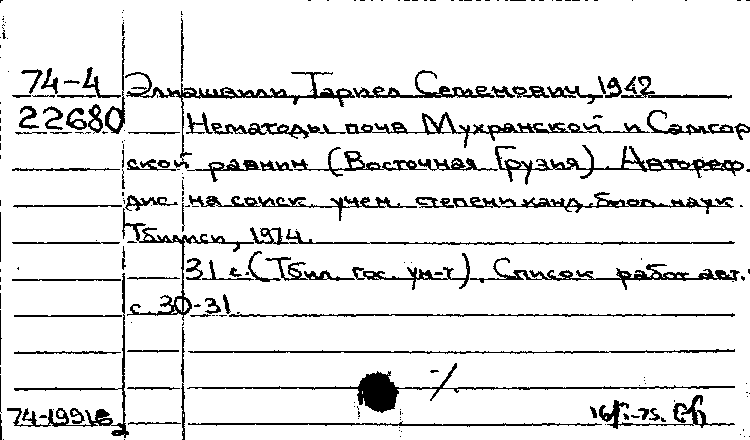 74-4 Элиашвили, Тариел Семенович, 1942
22680 Нематоды почв Мухранской и Самгор
ской равнин (Восточная Грузия). Автореф.
дис. на соиск. учен. степени канд. биол. наук.
Тбилиси, 1974.
31 с. (Тбил. гос. ун-т). Список работ авт.:
с. 30-31.
74-19918